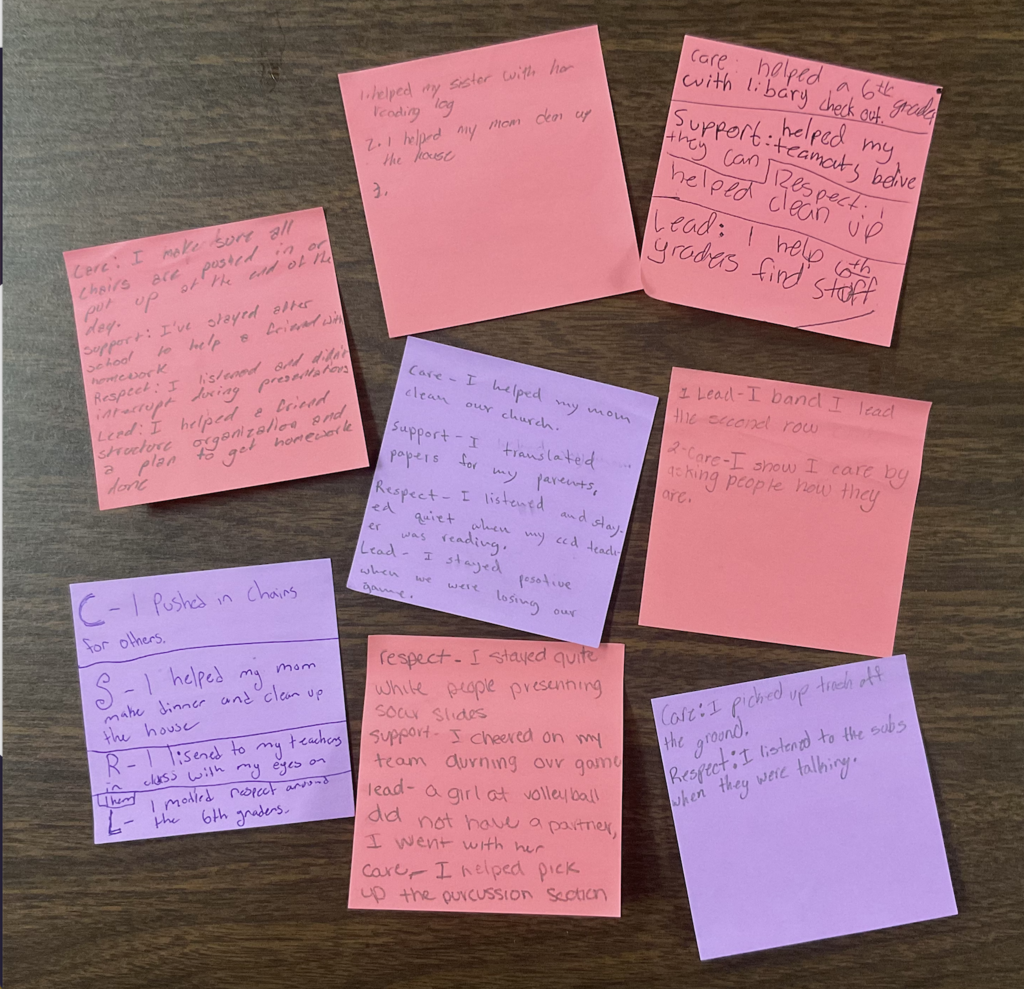 1. helped my sister with her
reading log
2. I helped my mom clean up
the house
3.
care: helped a 6th grader
with libary check out.
Support: helped my
teamates belive
they can
Respect: I
helped clean up
Lead: I help 6th
graders find stuff
Care: I make sure all
chairs are pushed in or
put up at the end of the
day.
Support: I've stayed after
school to help a friend with
homework
Respect: I listened and didn't
interrupt during presentations
Lead: I helped a friend
structure organization and
a plan to get homework
done
Care - I helped my mom
clean our church.
Support - I translated
papers for my parents,
Respect - I listened and stay-
ed quiet when my ccd teach-
er was reading.
Lead - I stayed posotive
when we were losing our
game.
1 Lead-I band I lead
the second row
2-Care-I show I care by
asking people how they
are.
C - I Pushed in Chairs
for others.
S - I helped my mom
make dinner and clean up
the house
R - I lisened to my teachers
in class with my eyes on
them
L - I modled respect around
the 6th graders.
respect - I stayed quite
while people presentning
soar slides
support - I cheered on my
team durning our game
lead - a girl at volleyball
did not have a partner,
I went with her
care - I helped pick
up the purcussion section
Care: I picked up trash off
the ground.
Respect: I listened to the subs
when they were talking.